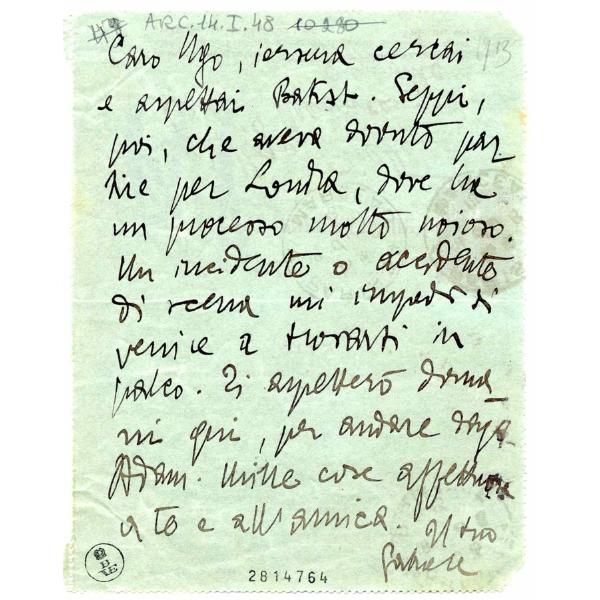 ARC. 14. I. 48 10280
1913
Caro Ugo, iersera cercai
e aspettai Bakst. Seppi,
poi, che aveva dovuto par
tire per Londra, dove ha
un processo molto noioso.
Un incidente o accidente
di scena mi impedì di
venire a trovarti in
palco. Ti aspetterò doma
ni qui, per andare dagli
Adam. Mille cose affettuose
a te e all'amica. Il tuo
Gabriele
2814764